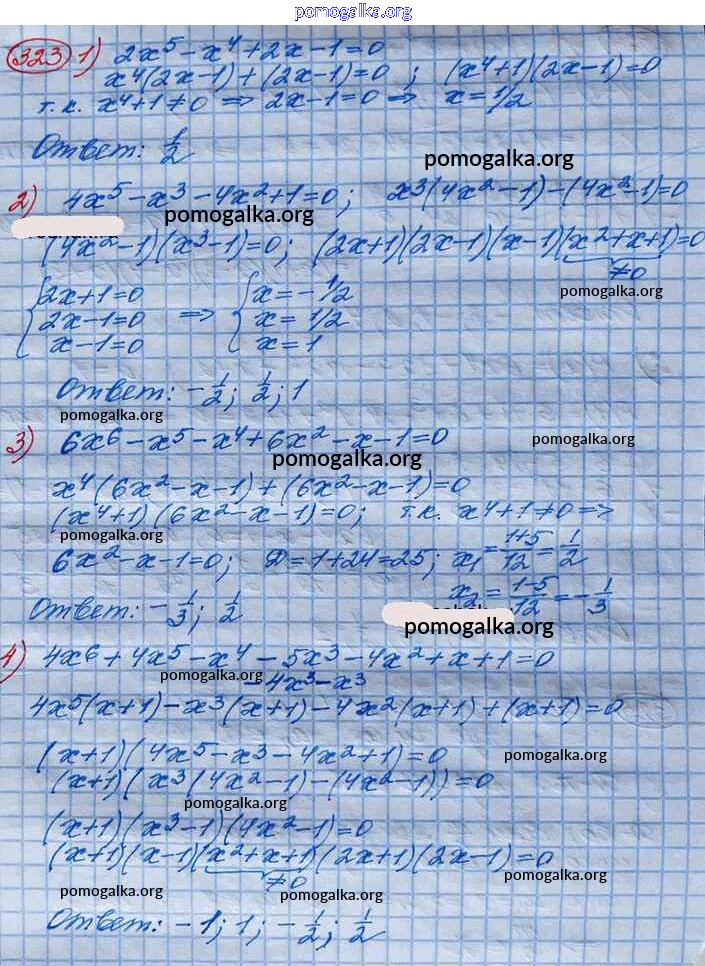 pomogalka.org
323 1) 2x⁵ - x⁴ + 2x - 1 = 0
x⁴(2x-1) + (2x-1) = 0 ; (x⁴+1)(2x-1) = 0
т.к. x⁴+1 ≠ 0 => 2x-1 = 0 => x = 1/2
Ответ: 1/2
pomogalka.org
2) 4x⁵ - x³ - 4x² + 1 = 0; x³(4x²-1) - (4x²-1) = 0
pomogalka.org
(4x²-1)(x³-1) = 0; (2x+1)(2x-1)(x-1)(x²+x+1) = 0
≠0
pomogalka.org
{2x+1=0 => {x = -1/2
2x-1=0 x = 1/2
x-1=0 x = 1
Ответ: -1/2; 1/2; 1
pomogalka.org
3) 6x⁶ - x⁵ - x⁴ + 6x² - x - 1 = 0
pomogalka.org
pomogalka.org
x⁴(6x²-x-1) + (6x²-x-1) = 0
(x⁴+1)(6x²-x-1) = 0; т.к. x⁴+1 ≠ 0 =>
pomogalka.org
6x²-x-1 = 0; D = 1+24 = 25; x₁ = 1+5/12 = 1/2
x₂ = 1-5/12 = -1/3
Ответ: -1/3; 1/2
pomogalka.org
4) 4x⁶ + 4x⁵ - x⁴ - 5x³ - 4x² + x + 1 = 0
pomogalka.org
-4x³ - x³
4x⁵(x+1) - x³(x+1) - 4x²(x+1) + (x+1) = 0
(x+1)(4x⁵ - x³ - 4x² + 1) = 0
pomogalka.org
(x+1)(x³(4x²-1) - (4x²-1)) = 0
pomogalka.org
(x+1)(x³-1)(4x²-1) = 0
(x+1)(x-1)(x²+x+1)(2x+1)(2x-1) = 0
≠0
pomogalka.org
pomogalka.org
pomogalka.org
Ответ: -1; 1; -1/2; 1/2